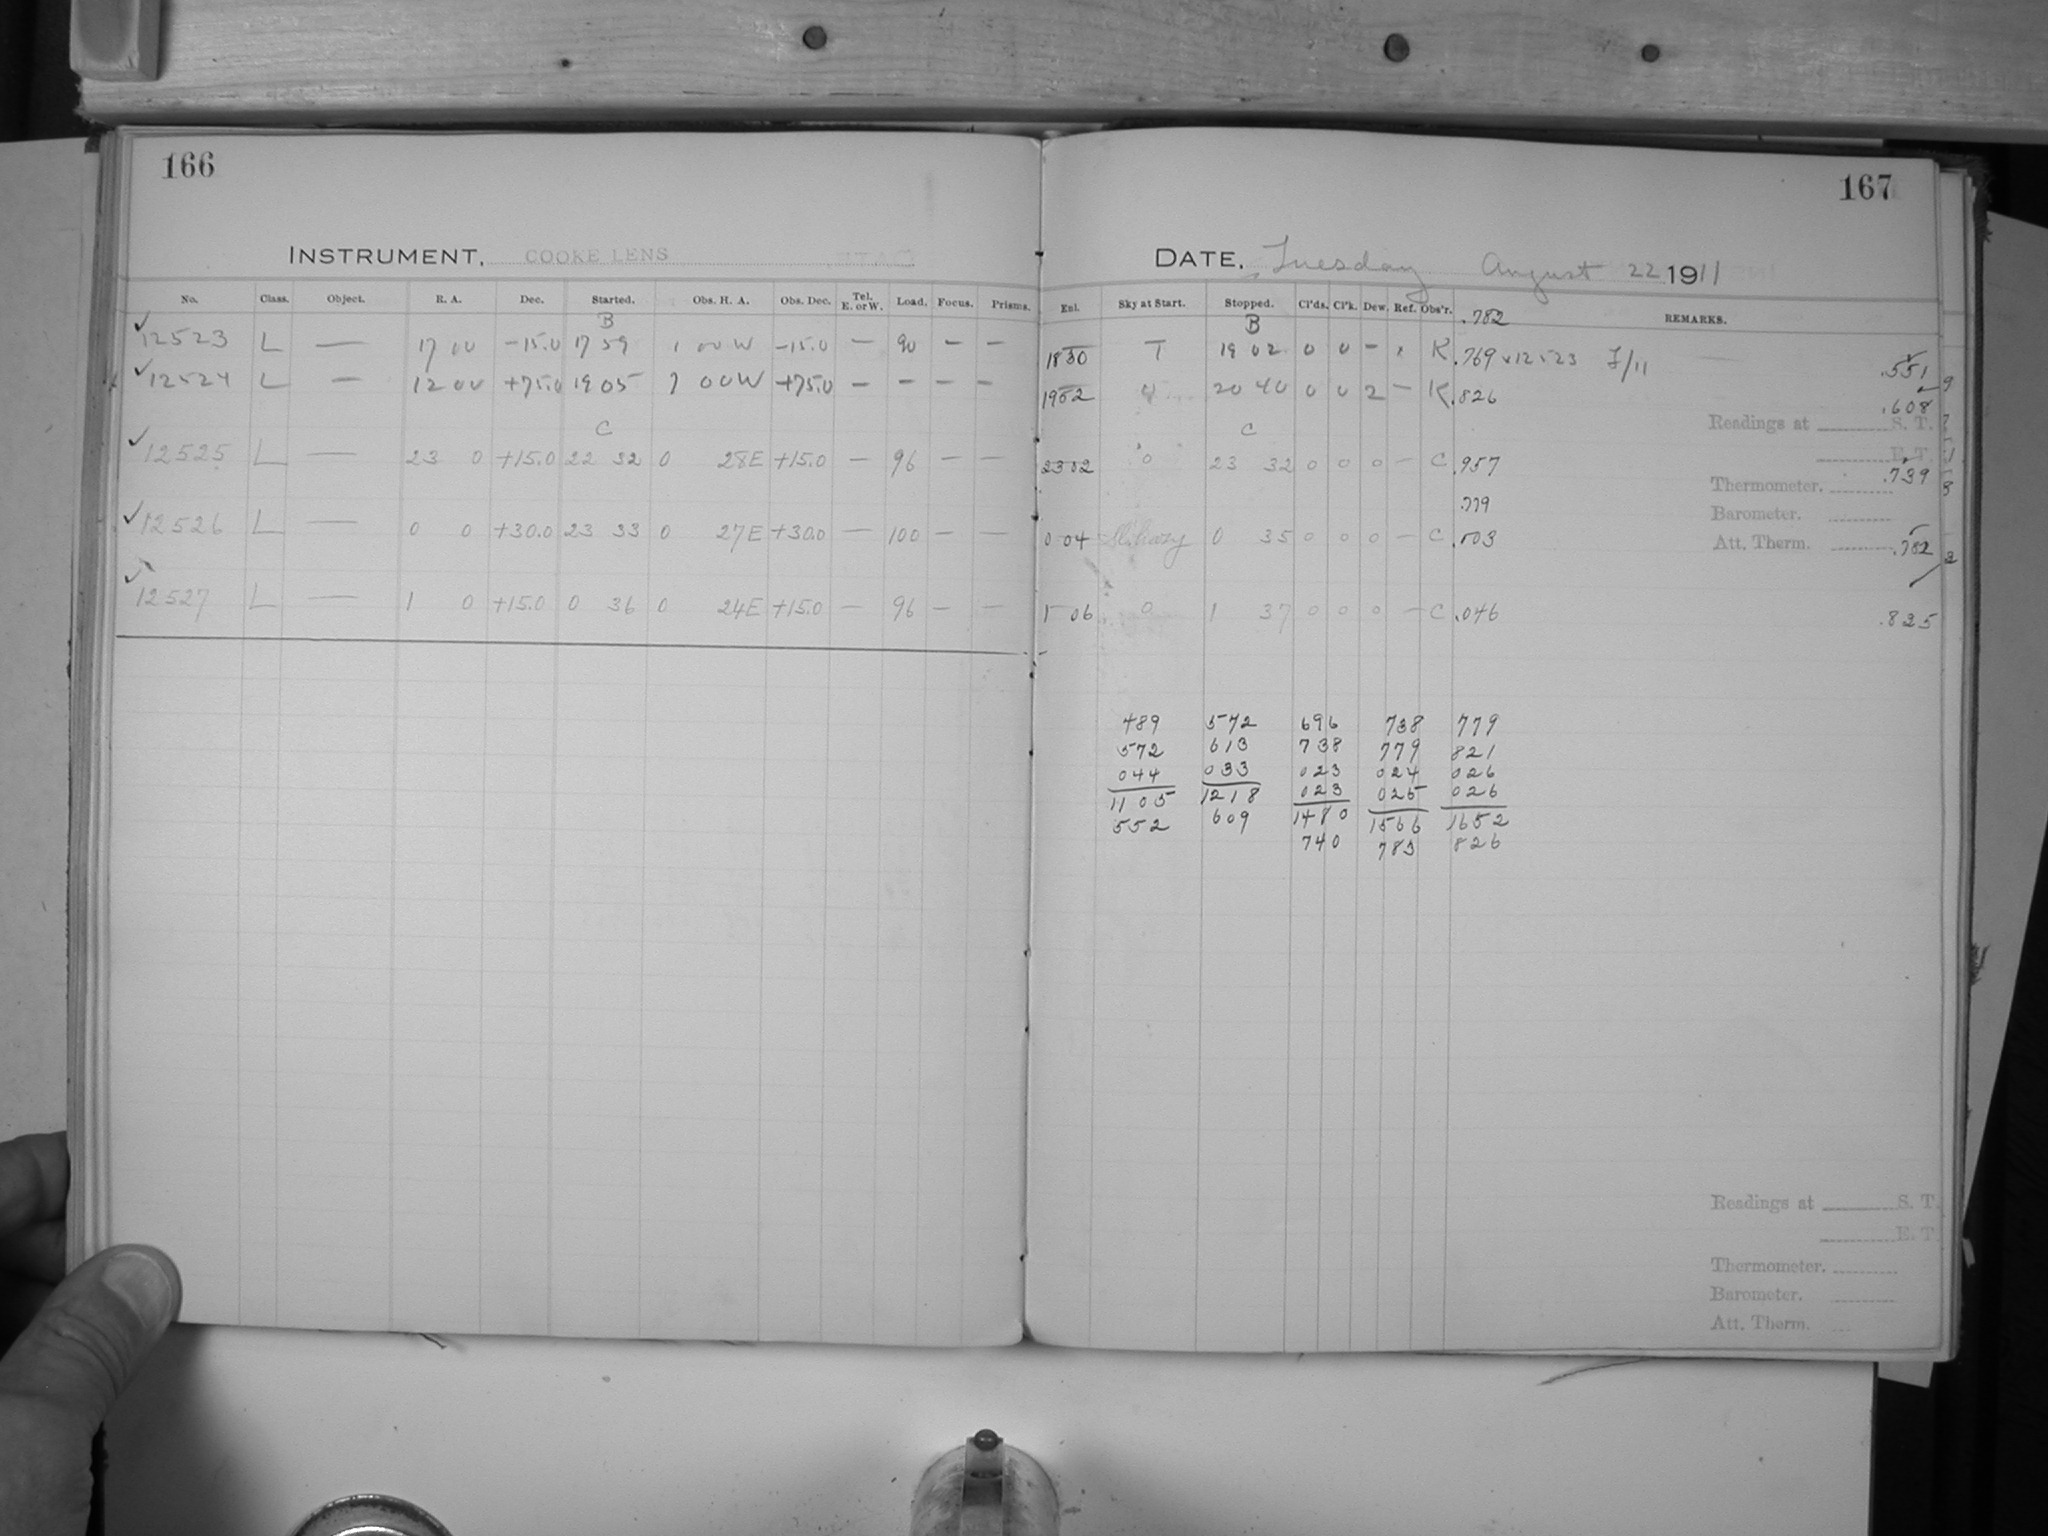 166
INSTRUMENT, COOKE LENS
No. Class. Object. R. A. Dec. Started. Obs. H. A. Obs. Dec. Tel. E. or W. Load. Focus. Prisms.
B
12523 L — 17 00 -15.0 17 59 1 00 W -15.0 — 90 — —
12524 L — 12 00 +75.0 19 05 7 00 W +75.0 — — — —
C
12525 L — 23 0 +15.0 22 32 0 28E +15.0 — 96 — —
12526 L — 0 0 +30.0 23 33 0 27E +30.0 — 100 — —
12527 L — 1 0 +15.0 0 36 0 24E +15.0 — 96 — —
167
DATE, Tuesday August 22 1911
Enl. Sky at Start. Stopped. Cl'ds. Cl'k. Dew. Ref. Obs'r. REMARKS.
.782
B
1830 T 19 02 0 0 — K .769 v12523 F/11 .551
1952 20 40 0 0 2 — K .826 .608
Readings at S. T.
C
2302 0 23 32 0 0 0 — C .957 E. T.
.739
Thermometer.
.779
Barometer.
0 04 Sl. hazy 0 35 0 0 0 — C .003 Att. Therm. .782
1 06 0 1 37 0 0 0 — C .046 .825
489 572 696 738 779
572 613 738 779 821
044 033 023 024 026
1105 1218 023 025 026
552 609 1480 1566 1652
740 783 826
Readings at S. T.
E. T.
Thermometer.
Barometer.
Att. Therm.